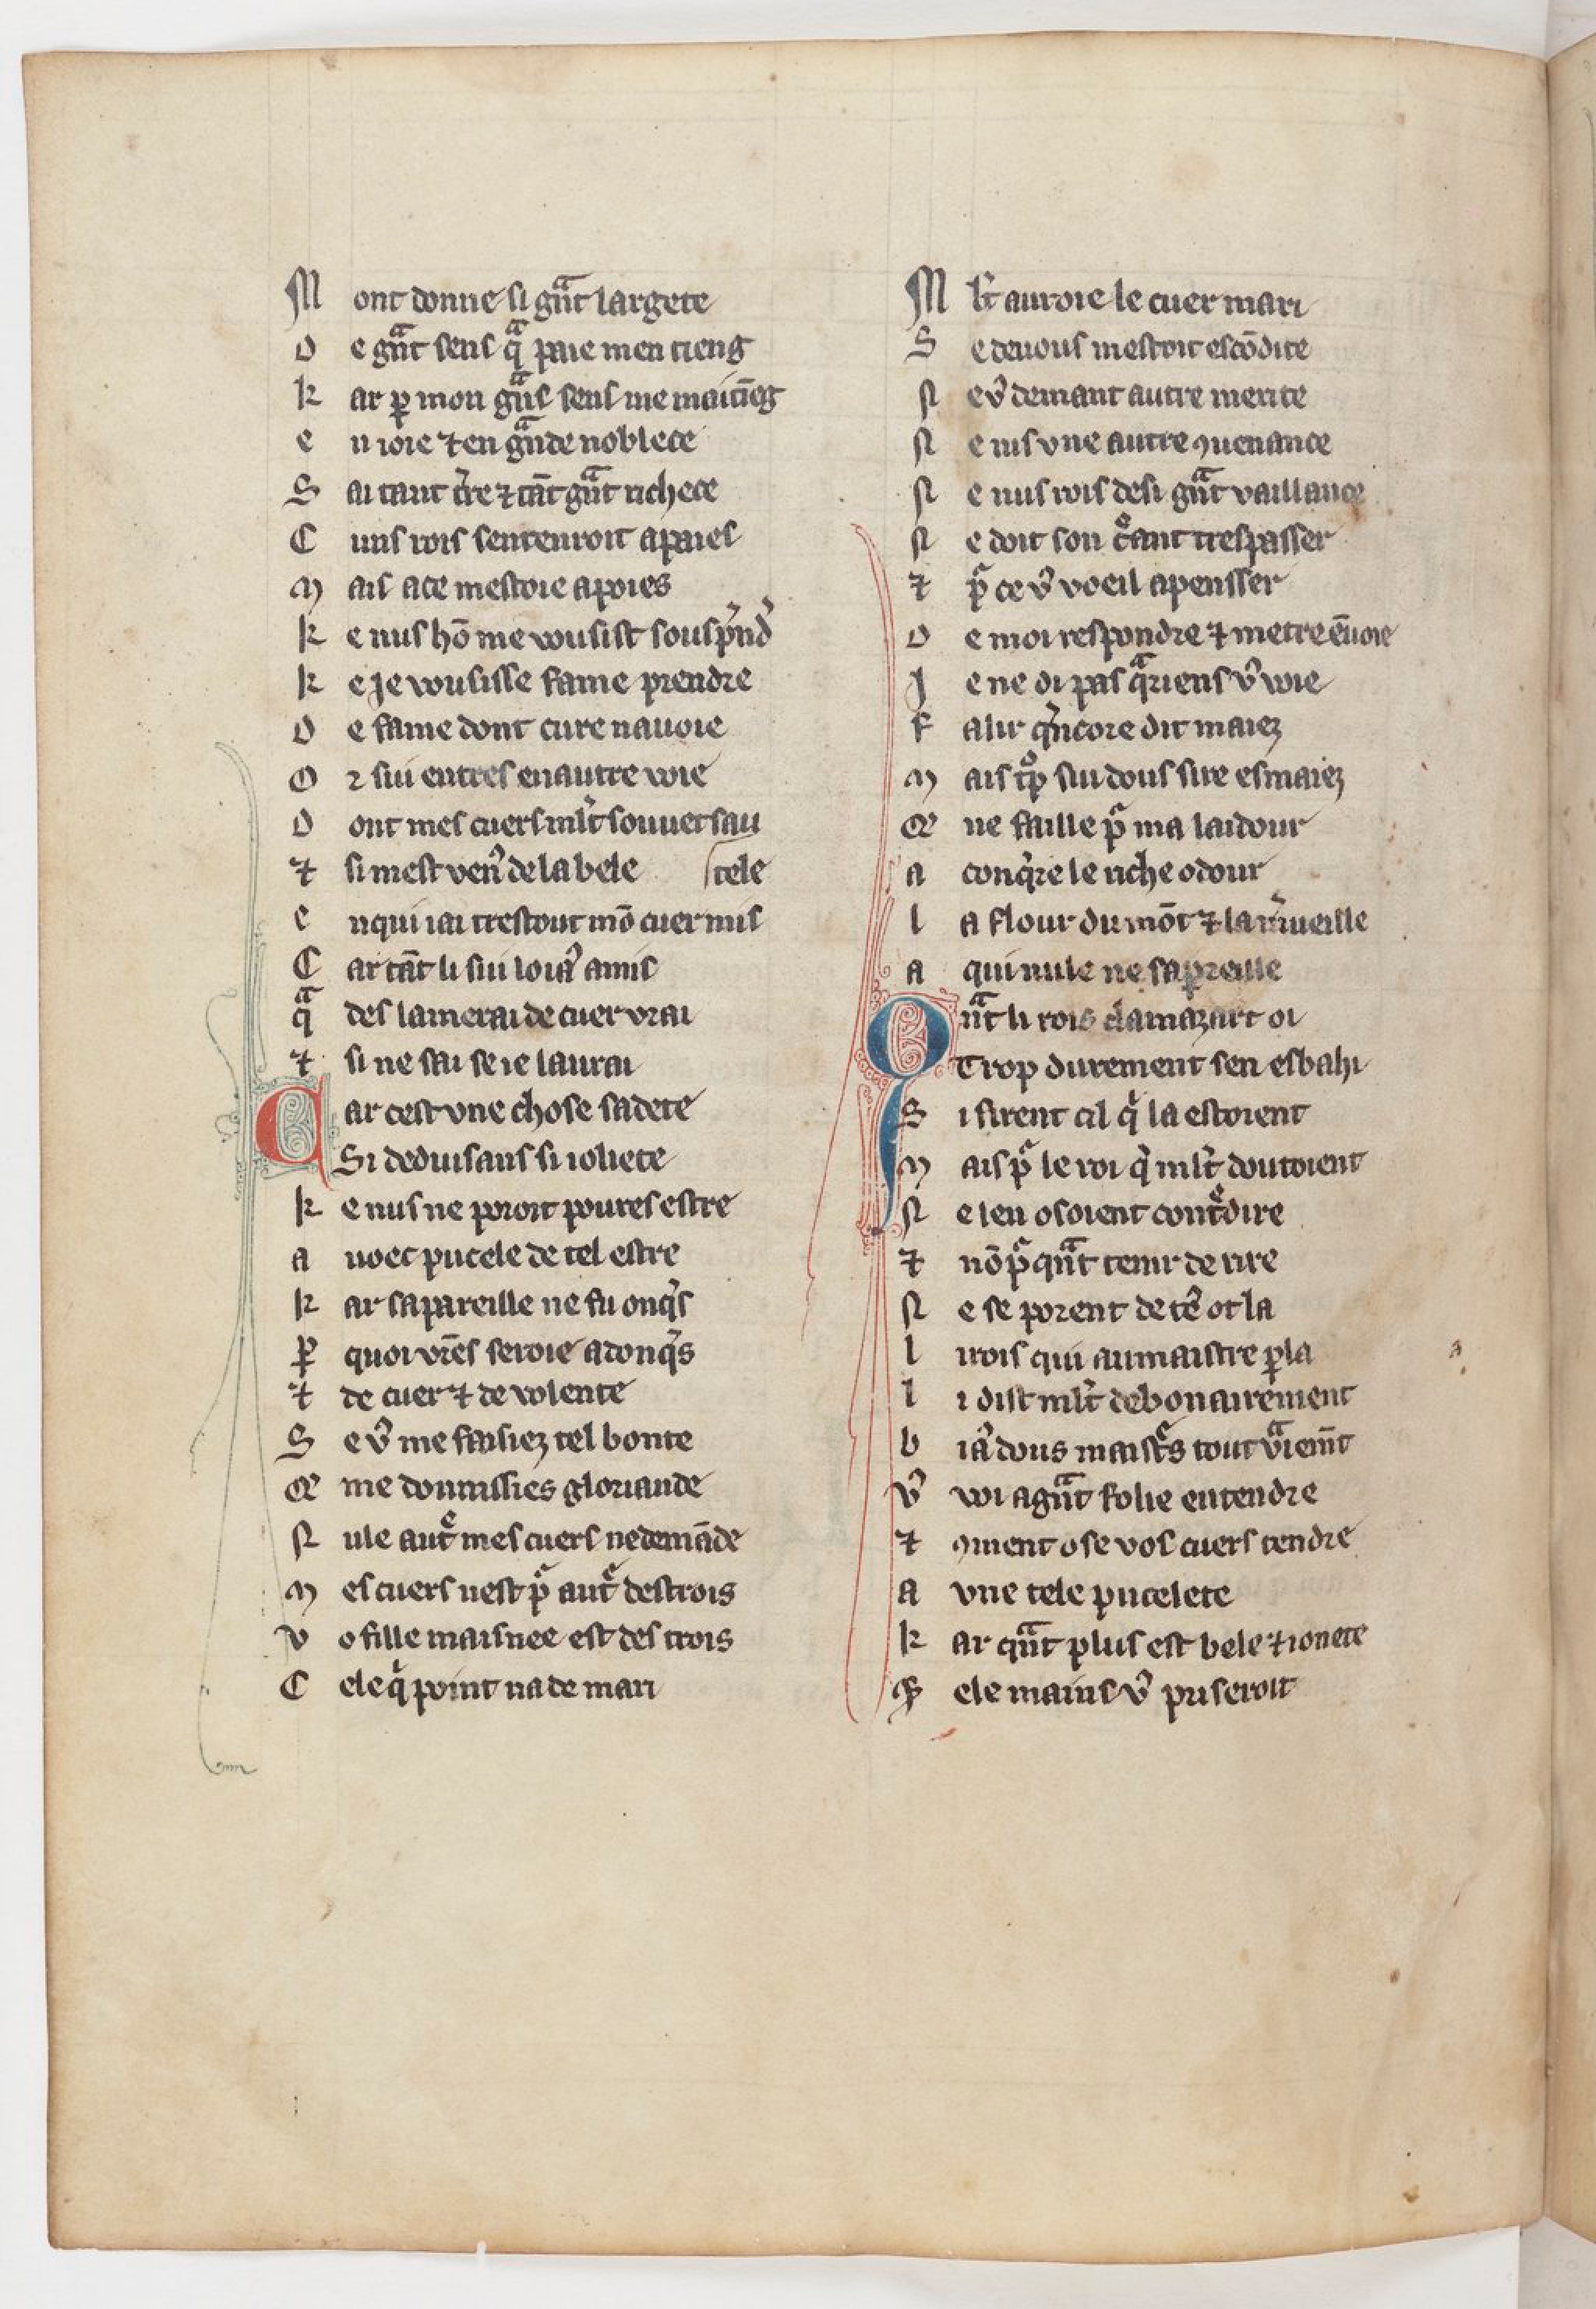 M ont donne si gnͣt largete
D e gnͣt sens qͣ paie men tieng
k ar ꝑ mon gnͣt sens me maitiēg
e n ioie ⁊ en gnͣde noblece
S ai tant t̾re ⁊ tāt gnͣt richece
C uns rois sentenroit apaies
M ais ace mestoie apoies
k e nus hō me vousist sousp̾nd̾
k e je vousisse fame prendre
D e fame dont cure navoie
O r sui entres en autre voie
D ont mes cuers ml̾t souvet sau
⁊ si mest ven᷒ de la bele tele
e n qui iai trestout mō cuer mis
C ar tāt li sui loia᷒ amis
qͣ des lamerai de cuer vrai
⁊ si ne sai se ie laurai
C ar cest une chose sadete
Si deduisans si ioliete
k e nus ne poroit poures estre
a uoec pucele de tel estre
k ar sa pareille ne fu onq̾s
ꝑ quoi vr̄es seroie adonq̾s
⁊ de cuer ⁊ de volente
S e v᷒ me faisiez tel bonte
Q̾ me donnissies gloriande
N ule autͤ mes cuers ne demāde
M es cuers nest p᷒ autͬ destrois
V o fille maisnee est des trois
C ele qͥ point na de mari
M l̾t auroie le cuer mari
S e de uous mestoit escōdite
N e v᷒ demant autre merite
N e nis vne autre ꝯuenance
N e nus rois de si gnͣt vaillance
N e doit son cͤant trespasser
⁊ p᷒ ce v᷒ voeil apensser
D e moi respondre ⁊ metre ē uoie
J e ne di pas qͣ riens v᷒ voie
F alir qͥncore dit maiez
M ais tͦp sui dous sire esmaiez
Q̾ ne faille p᷒ ma laidour
a conq̾re le riche odour
l a flour du mōt ⁊ la m̾ueille
a qui nule ne sapareille
Q nͣt li rois clamazart oi
Trop durement sen esbahi
S i firent cil qͥ la estoient
M ais p᷒ le roi qͥ ml̾t doutoient
N e len osoient contͤdire
⁊ nō p᷒ qnͣt tenir de rire
N e se porent de tē ot la
l i rois qui au maistre ꝑla
l i dist ml̾t debonairement
b ia᷒ dous maistͬs tout vͣiemt̄
V᷒ voi a gnͣt folie entendre
⁊ ꝯment ose vos cuers tendre
A vne tele pucelete
k ar qnͣt plus est bele ⁊ ionete
ele mains v᷒ priseroit